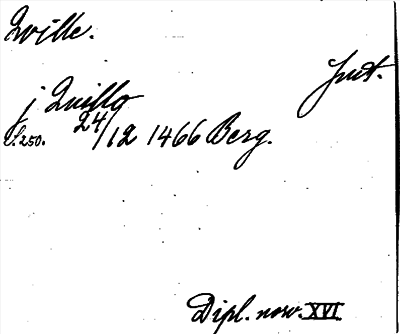 Qville.
Jnt.
j Quillo
S. 250. 24/12 1466 Berg.
Dipl. norv. XVI